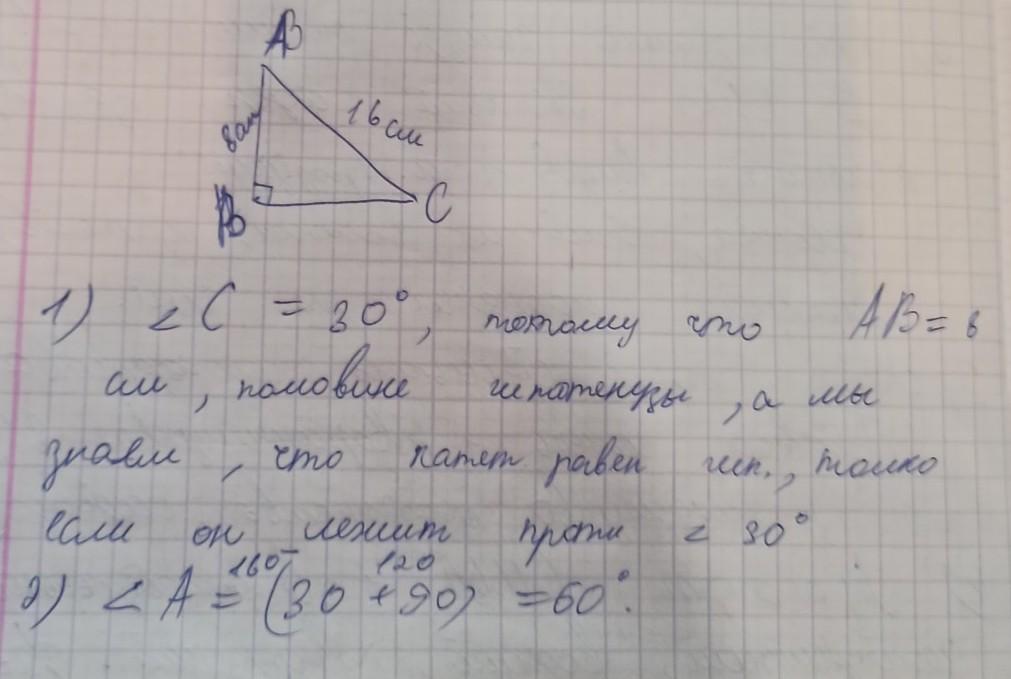 A
8 см
16 см
B
C
1) ∠C = 30°, потому что AB = 8
см, половине гипотенузы, а мы
знаем, что катет равен гип., толко
если он лежит проти ∠ 30°
180 - 120
2) ∠A = (30 + 90) = 60°.